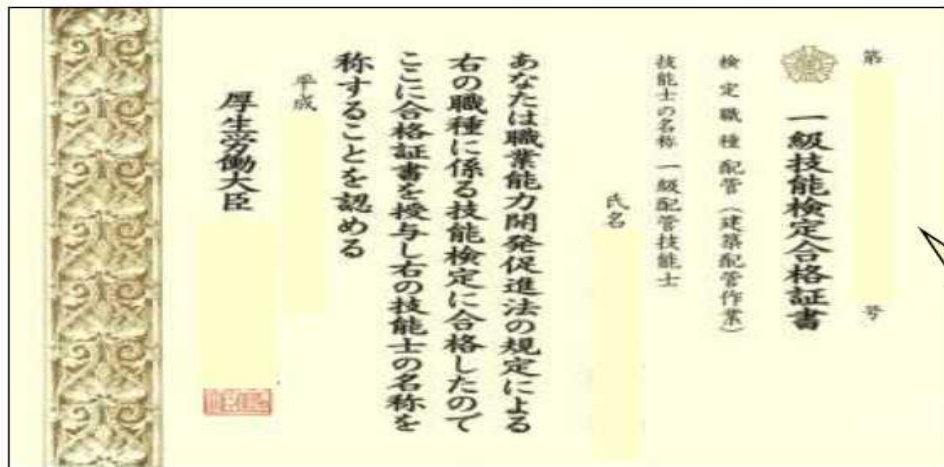 第 号
一級技能検定合格証書
検定職種 配管（建築配管作業）
技能士の名称 一級配管技能士
氏名
あなたは職業能力開発促進法の規定による
右の職種に係る技能検定に合格したので
ここに合格証書を授与し右の技能士の名称を
称することを認める
平成
厚生労働大臣